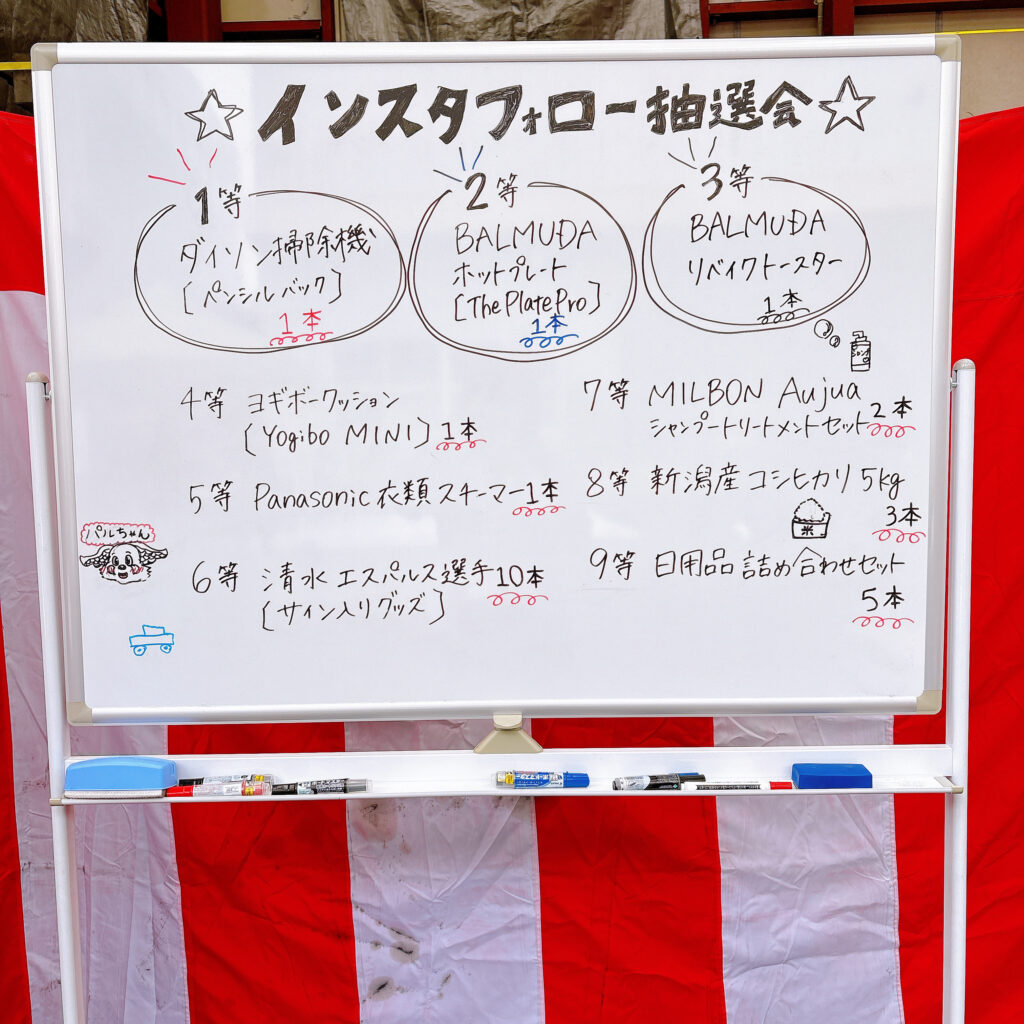 ☆インスタフォロー抽選会☆
1等
ダイソン掃除機
[ペンシルバック]
1本
2等
BALMUDA
ホットプレート
[ThePlatePro]
1本
3等
BALMUDA
リベイクトースター
1本
4等 ヨギボークッション
[Yogibo MINI] 1本
5等 Panasonic 衣類スチーマー1本
6等 清水エスパルス選手10本
[サイン入りグッズ]
7等 MILBON Aujua
シャンプートリートメントセット2本
8等 新潟産コシヒカリ 5kg
3本
米
9等 日用品詰め合わせセット
5本
パルちゃん